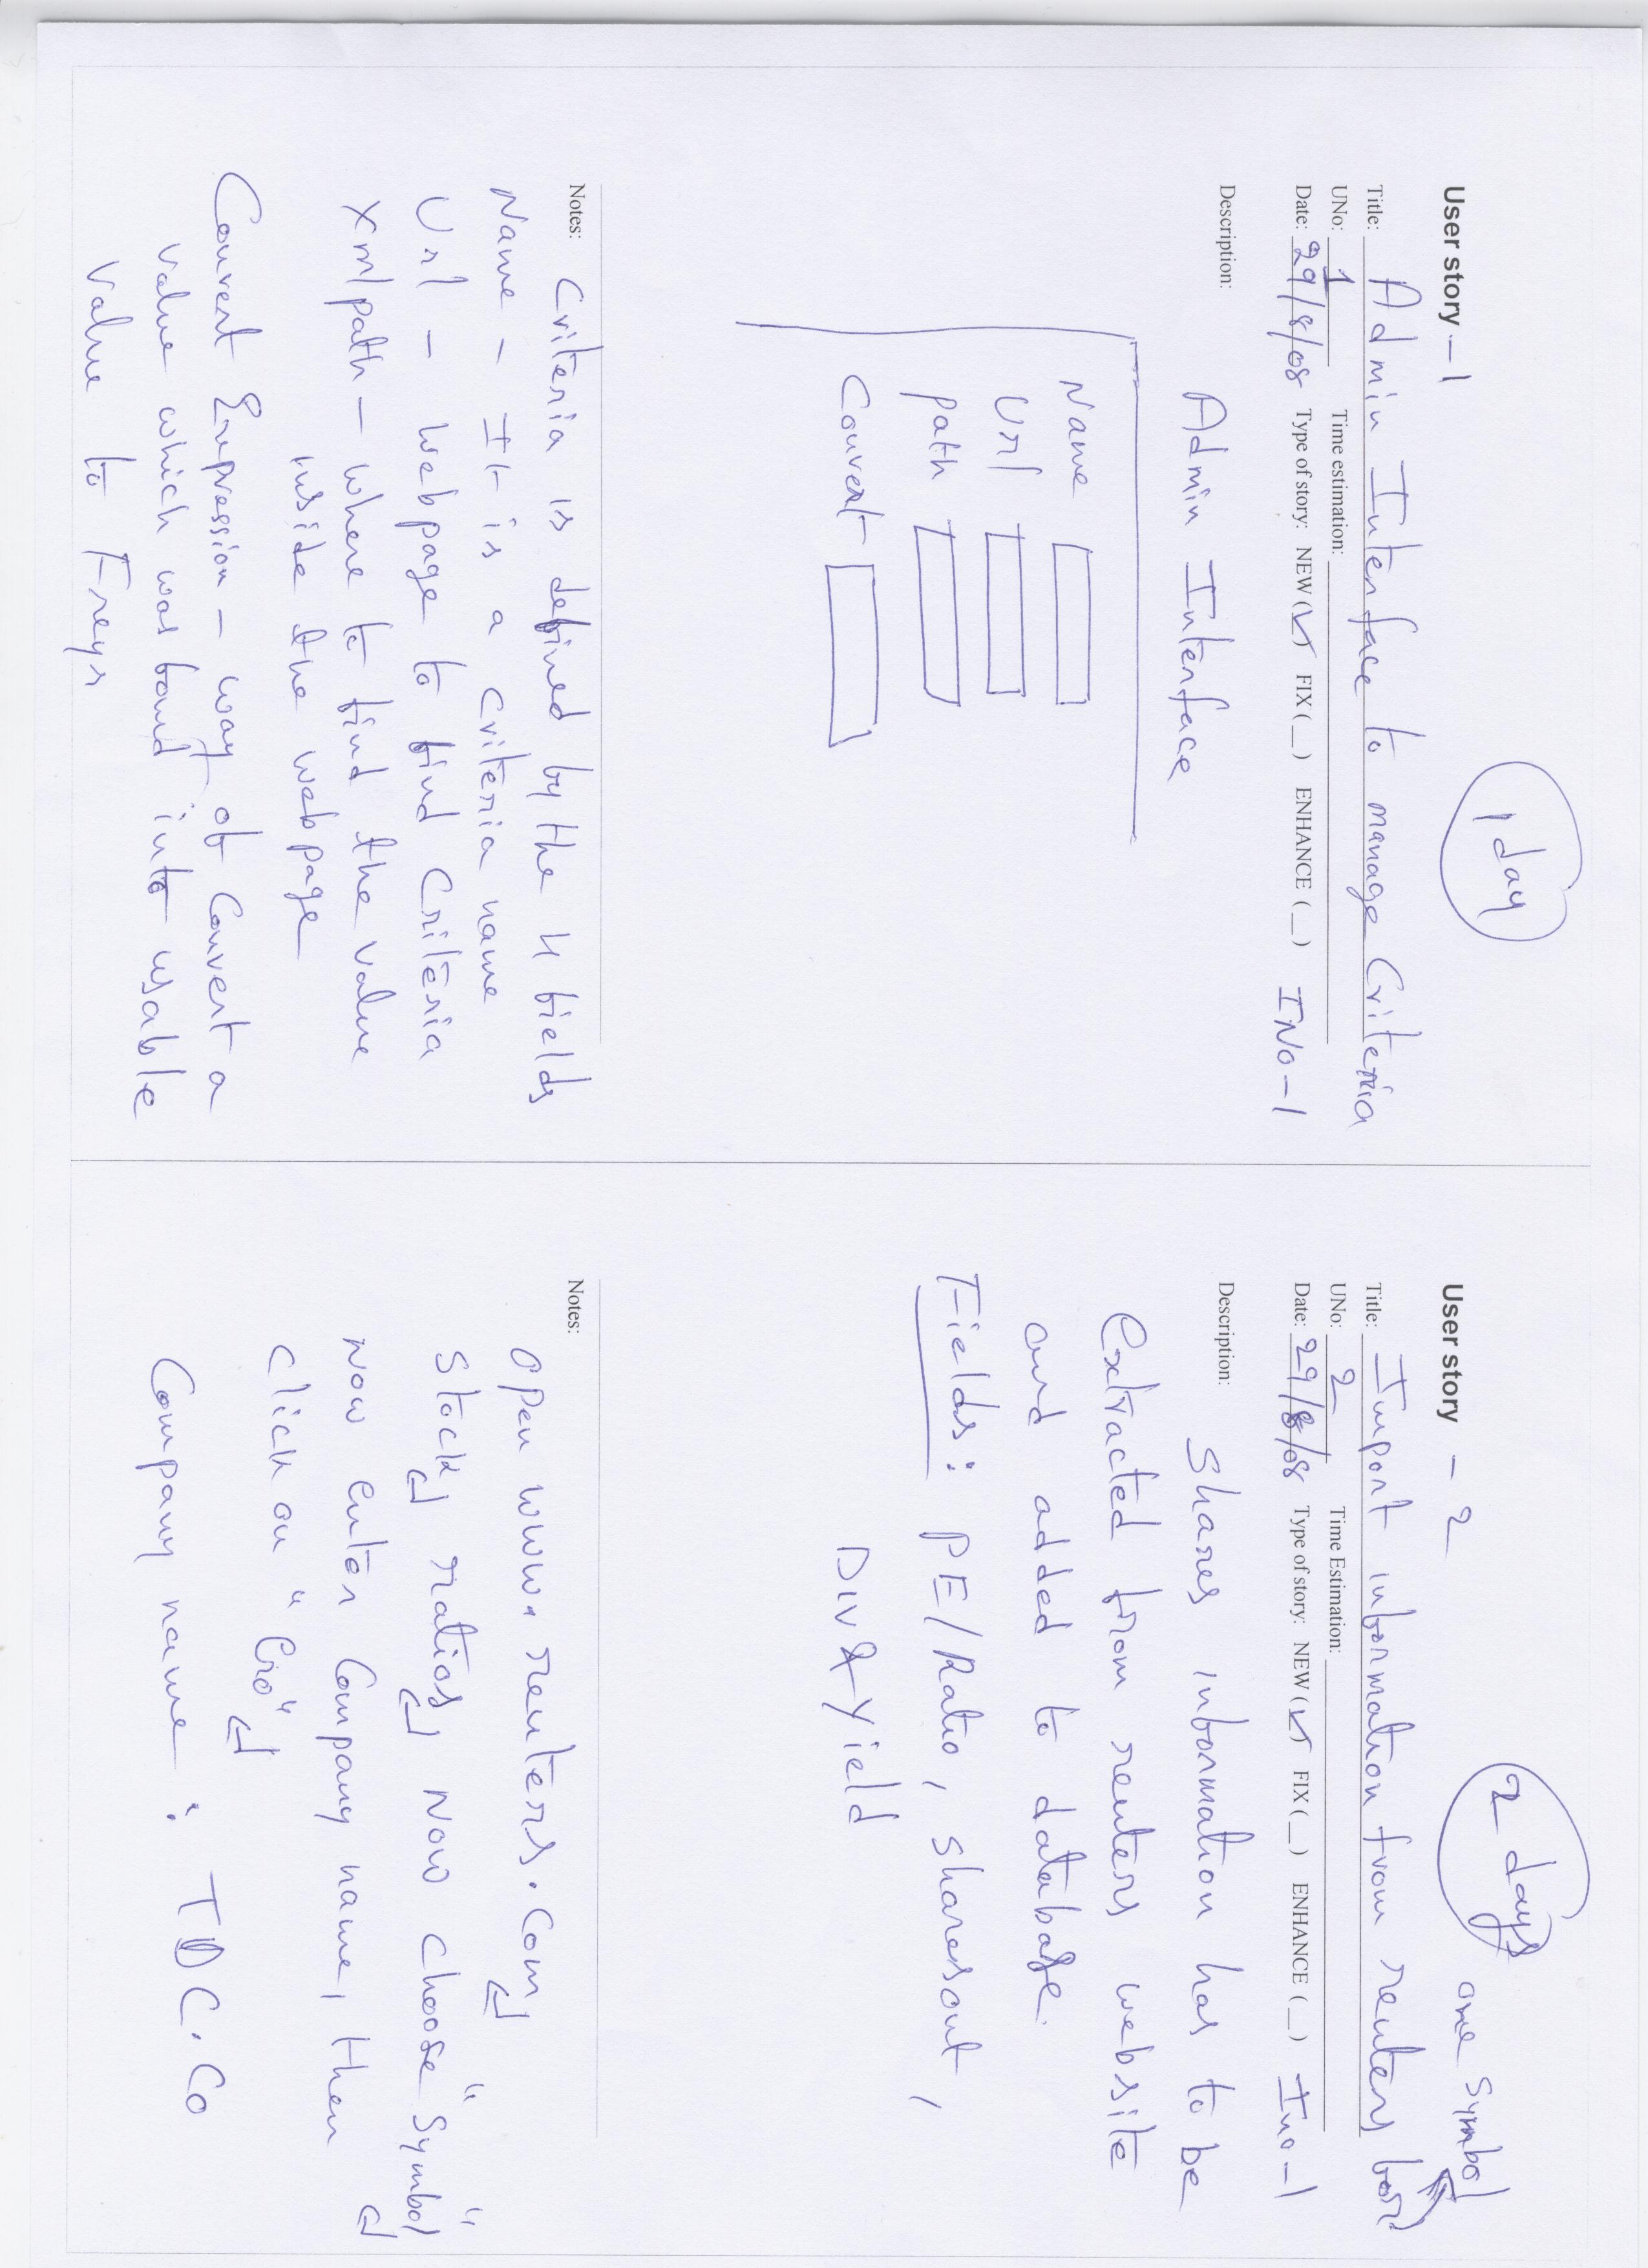 User story - 1
1 day
Title: Admin Interface to manage Criteria
UNo: 1 Time estimation:
Date: 29/8/08 Type of story: NEW (✓) FIX (_) ENHANCE (_) INo-1
Description:
Admin Interface
Name
Url
Path
Convert
Notes: Criteria is defined by the 4 fields
Name - It is a criteria name
Url - webpage to find Criteria
xmlpath - where to find the value
inside the webpage
Convert Expression - way of Convert a
value which was found into usable
value to Freys
User story - 2
2 days
one Symbol
Title: Import information from reuters for
UNo: 2 Time Estimation:
Date: 29/8/08 Type of story: NEW (✓) FIX (_) ENHANCE (_) Ino-1
Description:
Shares information has to be
extracted from reuters website
and added to database.
Fields: PE/Ratio, sharesout,
Div & Yield
Notes:
open www.reuters.com
Stock ratios Now choose "Symbol"
Now enter Company name, then
click on "Go"
Company name : TDC.Co